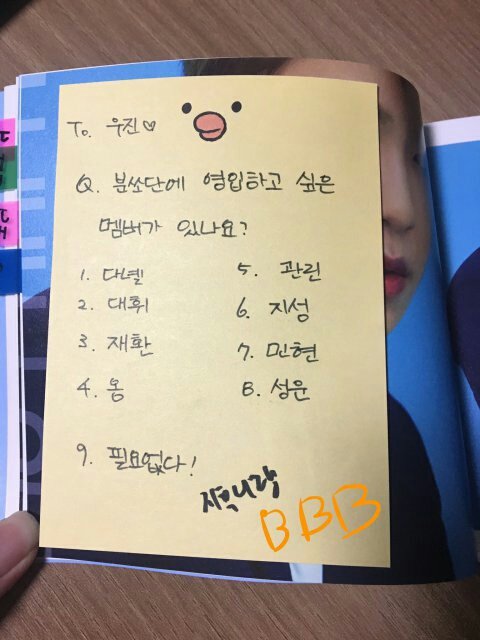 To. 우진♡
Q. 분쏘단에 영입하고 싶은
멤버가 있나요?
1. 다녤
2. 대휘
3. 재환
4. 옹
5. 관린
6. 지성
7. 민현
8. 성운
9. 필요없다!
BBB